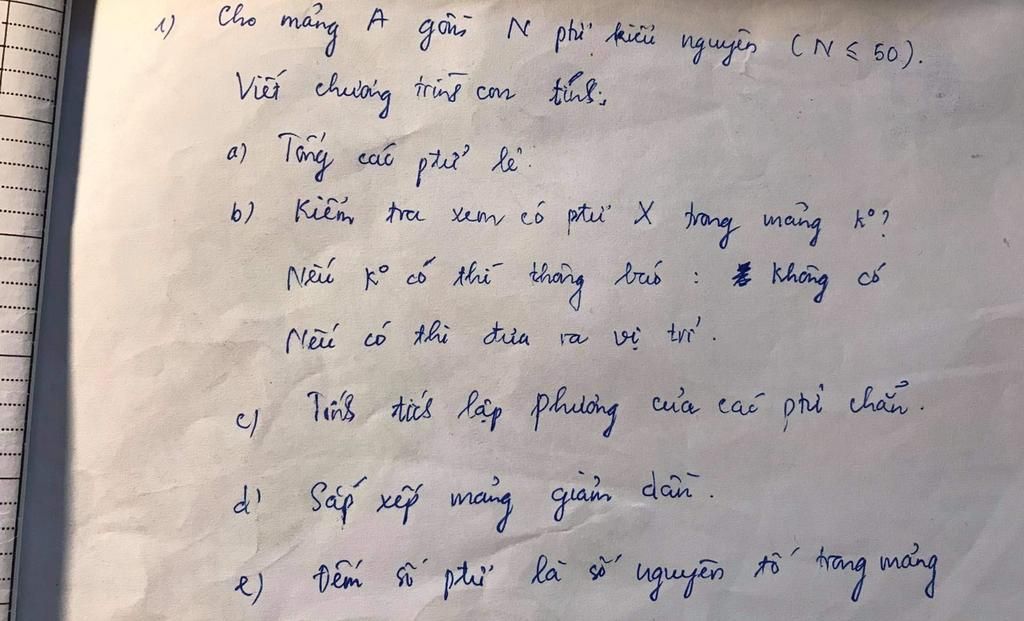 1) Cho mảng A gồm N ptử kiểu nguyên (N ≤ 50).
Viết chương trình con tính:
a) Tổng các ptử lẻ.
b) Kiểm tra xem có ptử X trong mảng k°?
Nếu k° có thì thông báo : Không có
Nếu có thì đưa ra vị trí.
c) Tính tích lập phương của các ptử chẵn.
d) Sắp xếp mảng giảm dần.
e) Đếm số ptử là số nguyên tố trong mảng